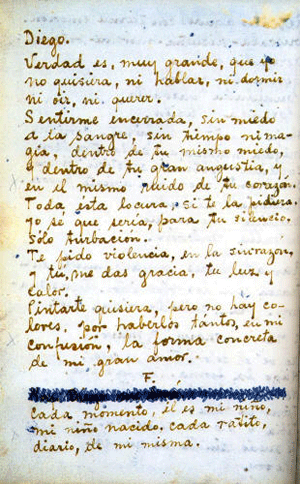 Diego.
Verdad es, muy grande, que yo
no quisiera, ni hablar, ni dormir
ni oír, ni querer.
Sentirme encerrada, sin miedo
a la sangre, sin tiempo ni ma-
gia, dentro de tu mismo miedo,
y dentro de tu gran angustia, y
en el mismo ruido de tu corazón.
Toda esta locura, si te la pidiera,
yo sé que sería, para tu silencio,
sólo turbación.
Te pido violencia, en la sinrazón,
y tú, me das gracia, tu luz y
calor.
Pintarte quisiera, pero no hay co-
lores, por haberlos tántos, en mi
confusión, la forma concreta
de mi gran amor.
F.
Cada momento, él es mi niño,
mi niño nacido, cada ratito,
diario, de mi misma.